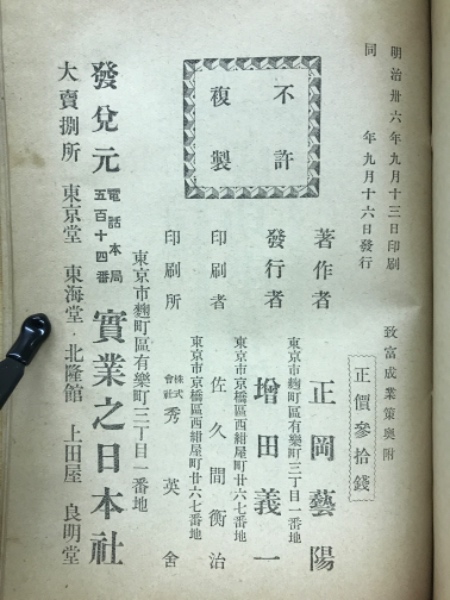 明治卅六年九月十三日印刷
同　　年九月十六日發行
致富成業策奧附
正價參拾錢
不許
複製
著作者　正岡藝陽
東京市麹町區有樂町三丁目一番地
發行者　增田義一
東京市京橋區西紺屋町廿六七番地
印刷者　佐久間衡治
東京市京橋區西紺屋町廿六七番地
印刷所　株式會社　秀英舍
東京市麹町區有樂町三丁目一番地
發兌元　電話本局五百十四番　實業之日本社
大賣捌所　東京堂　東海堂　北隆館　上田屋　良明堂